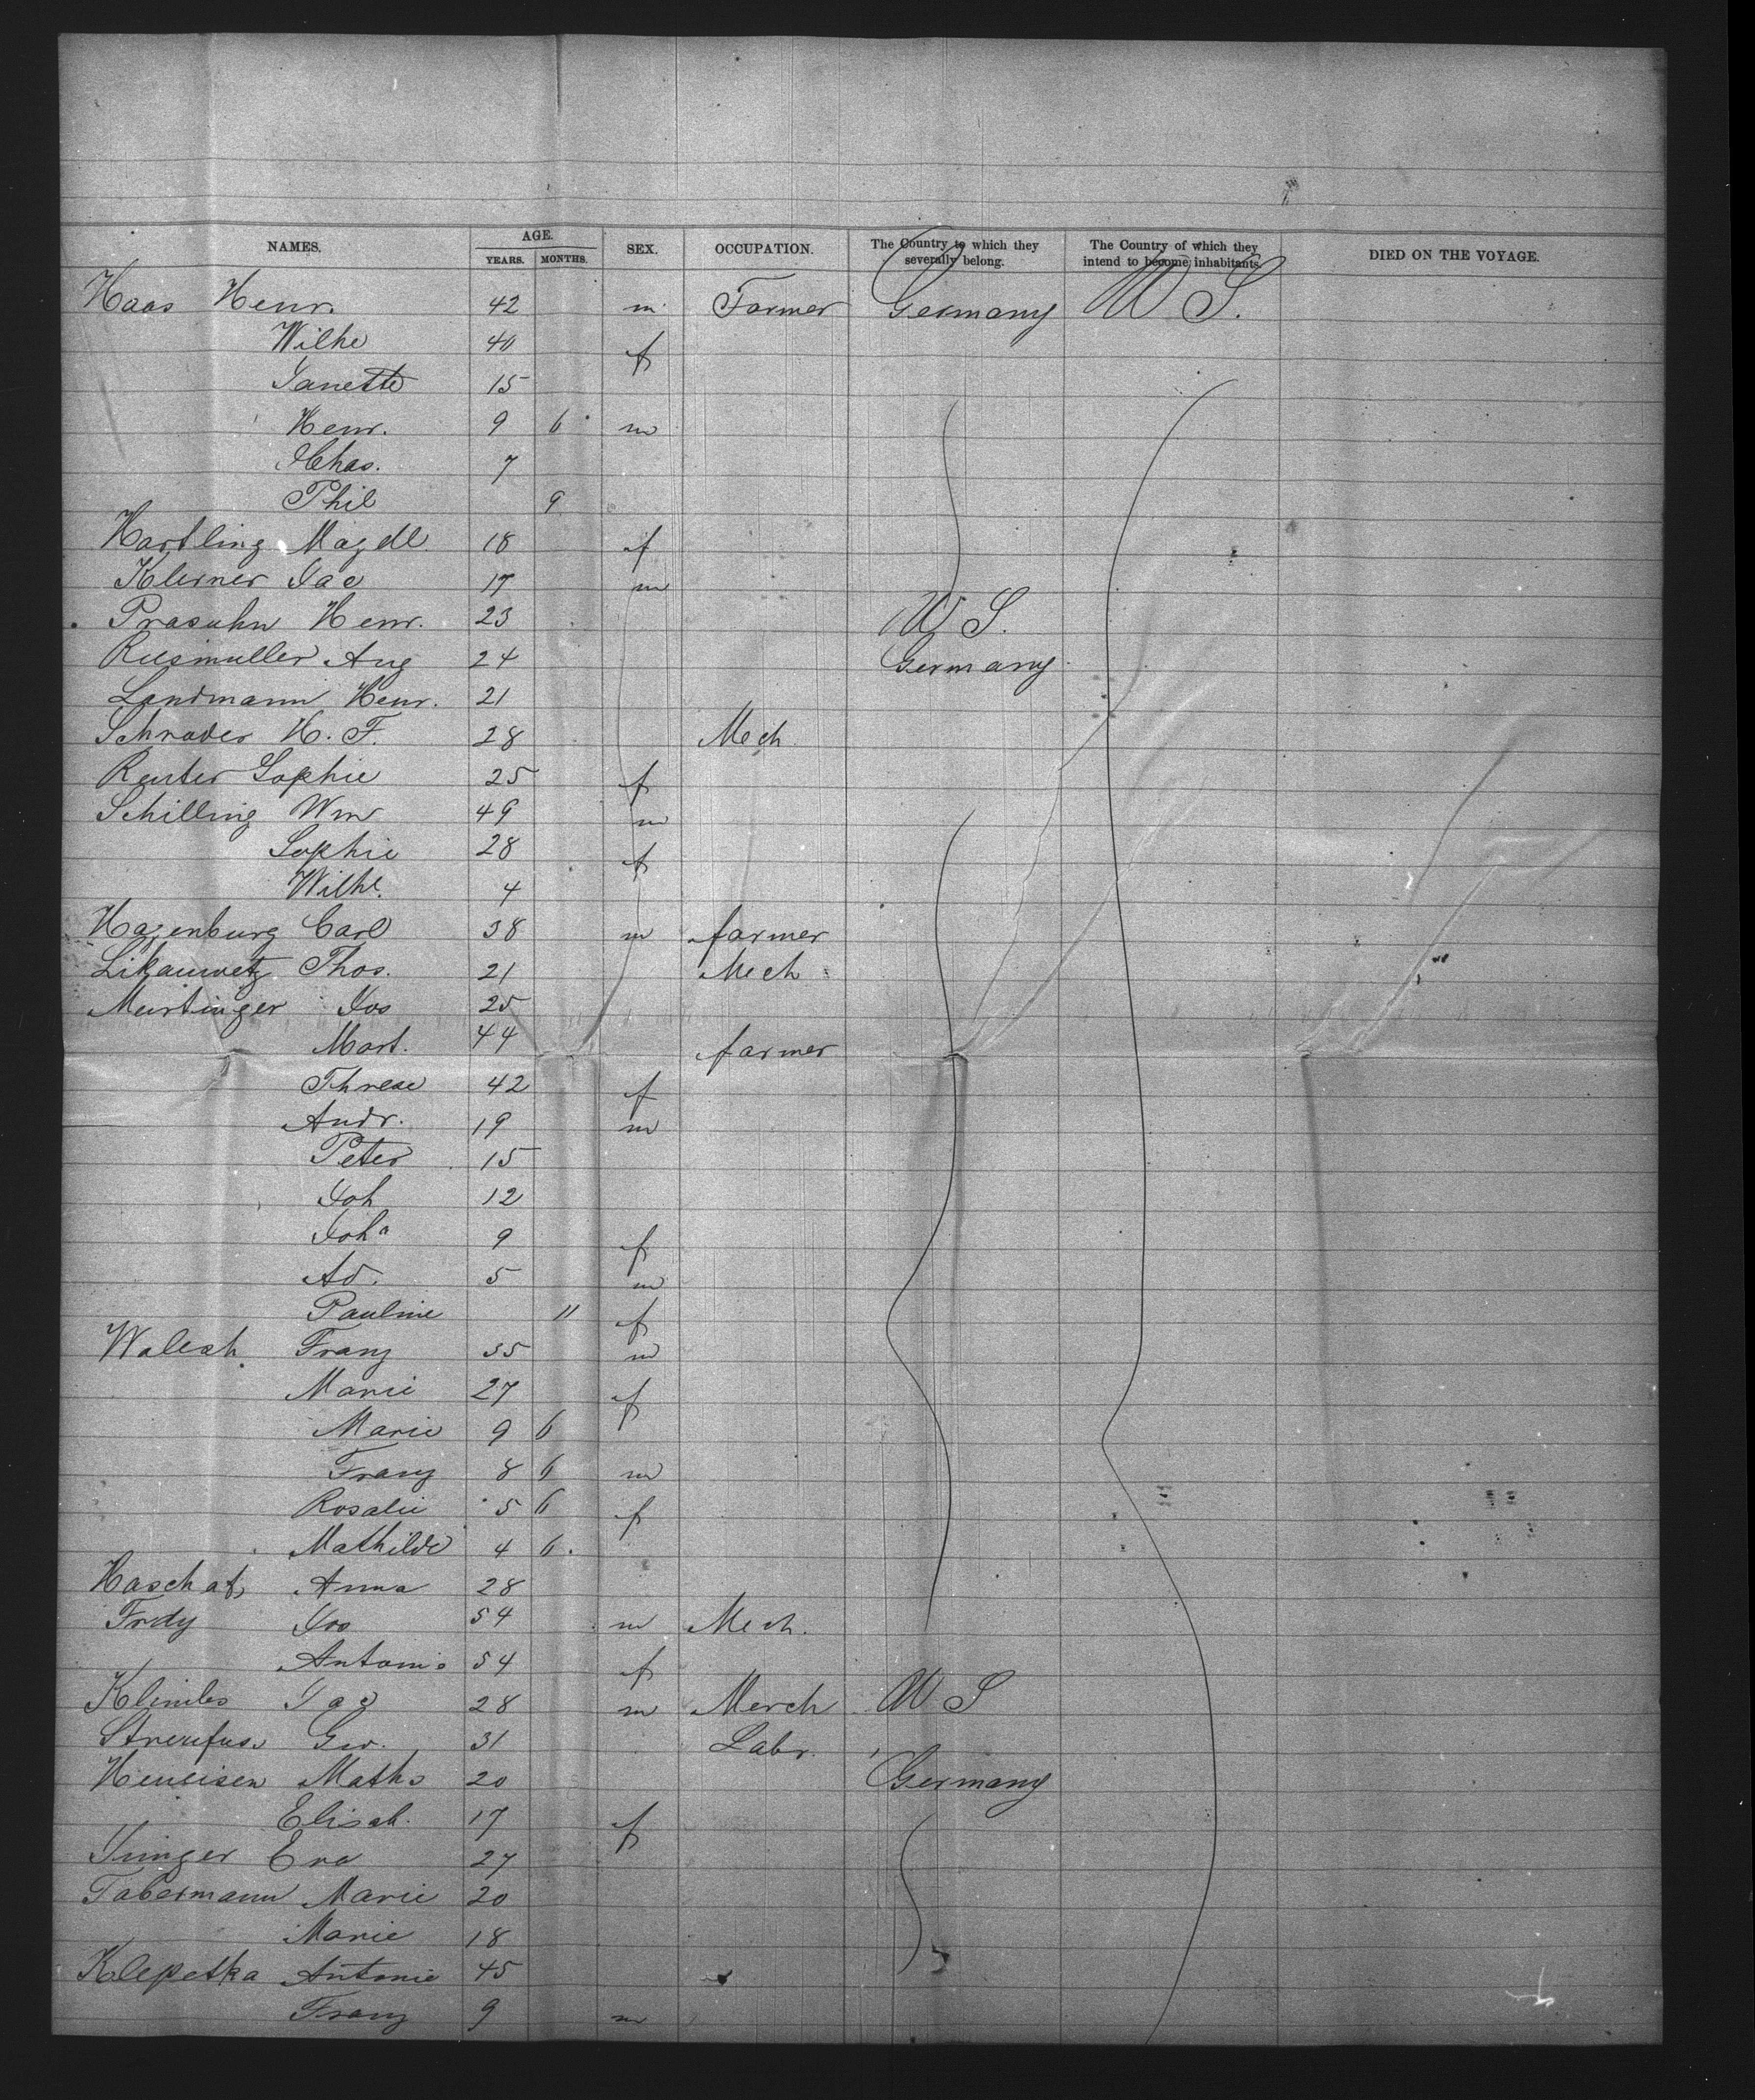 NAMES. AGE. SEX. OCCUPATION. The Country to which they severally belong. The Country of which they intend to become inhabitants. DIED ON THE VOYAGE.
YEARS. MONTHS.
Haas Henr. 42 m Farmer Germany U S.
Wilhe 40 f
Janette 15
Henr. 9 6 m
Chas. 7
Phil 9
Hartling Magdl. 18 f
Klerner Jac 17 m
Prasuhn Henr. 23 U S.
Riesmuller Aug 24 Germany
Landmann Henr. 21
Schrader H. F. 28 Mech.
Reuter Sophie 25 f
Schilling Wm 49 m
Sophie 28 f
Wilhe. 4
Hagenburg Carl 38 m farmer
Likauwetz Thos. 21 Mech
Meirtinger Jos 25
Mart. 44 farmer
Threse 42 f
Andr. 19 m
Peter 15
Joh 12
Joha 9 f
Ad. 5 m
Pauline 11 f
Walesh Franz 35 m
Marie 27 f
Marie 9 6
Franz 8 6 m
Rosalie 5 6 f
Mathilde 4 6
Anna 28
Frdy Jos 54 m Mech.
Antonie 54 f
Jac 28 m Merch U S
Geo. 31 Labr.
Heneisen Maths 20 Germany
Elisab. 17 f
Junger Eva 27
Tabermann Marie 20
Marie 18
Klepetka Antonie 45
Franz 9 m